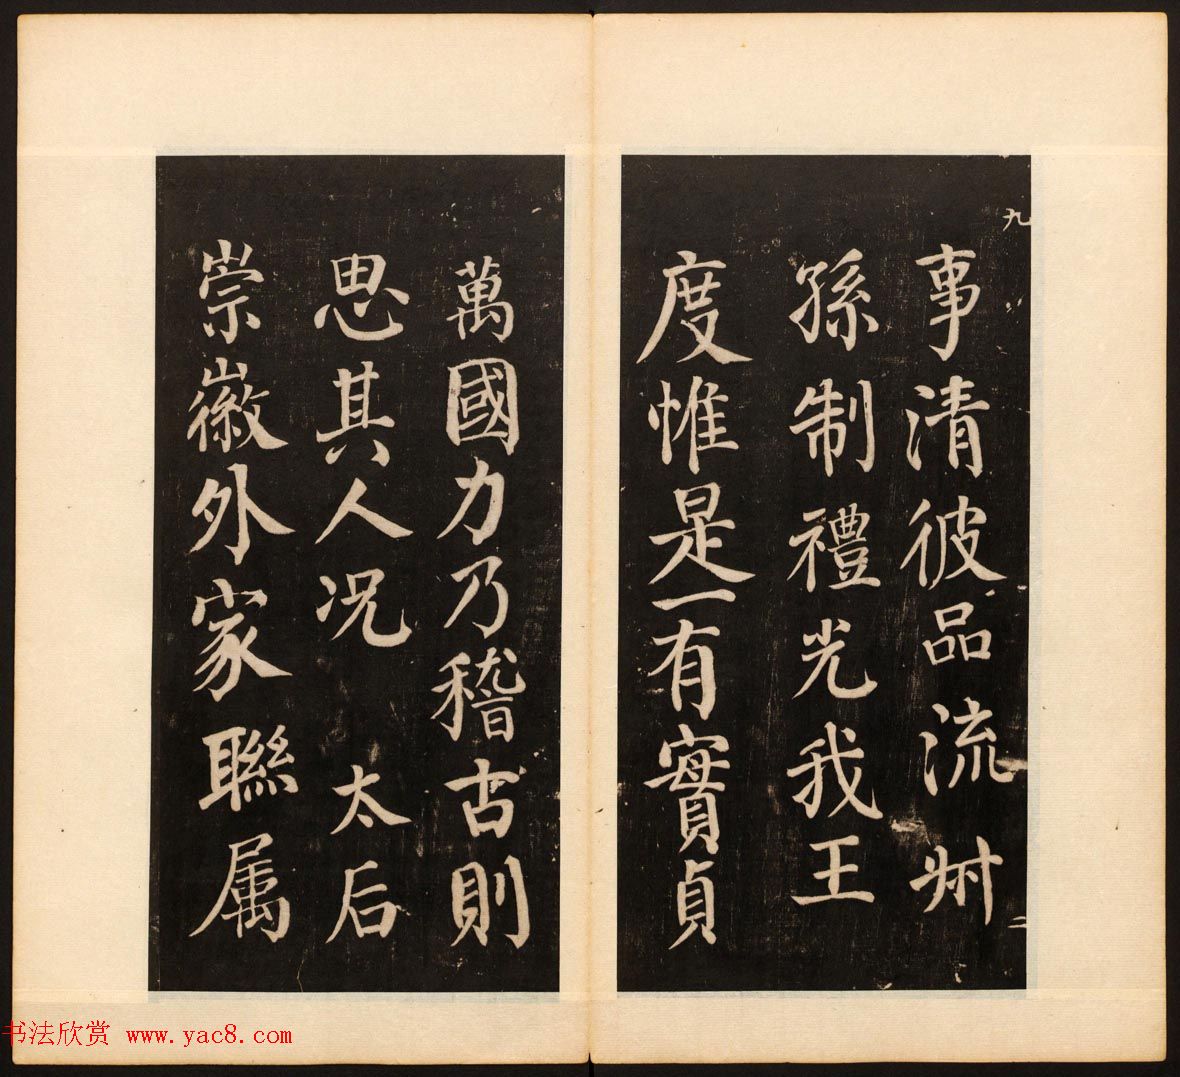 九
事清彼品流州
孫制禮光我王
度惟是一有實貞
二
萬國力乃稽古則
思其人况 太后
崇徽外家聯属
书法欣赏 www.yac8.com